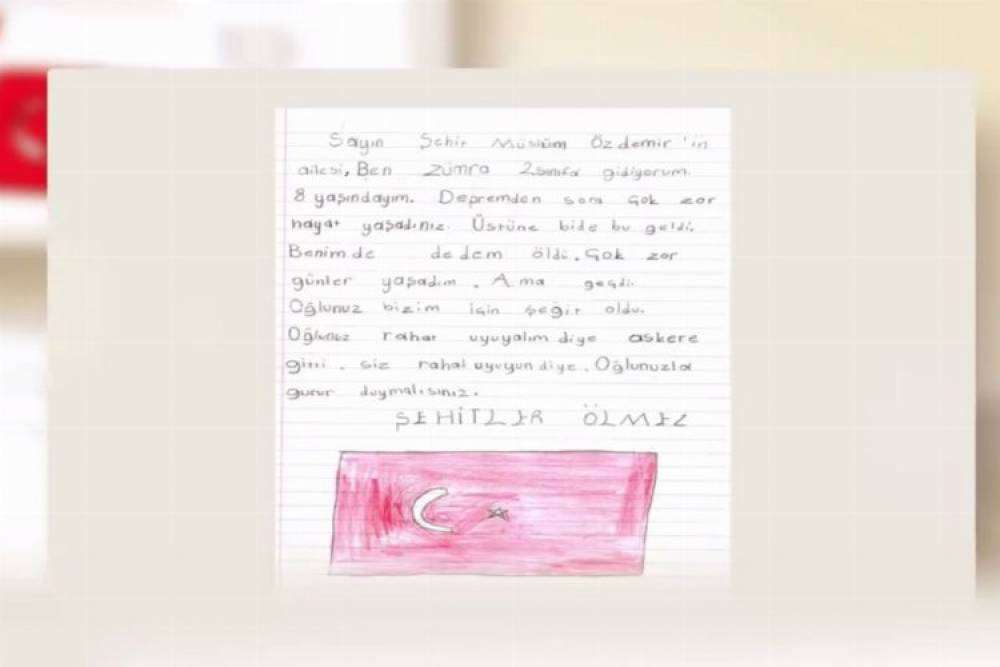 Sayın Şehit Müslüm Özdemir 'in
ailesi, Ben Zümra 2.sınıfa gidiyorum.
8 yaşındayım. Depremden sora çok zor
hayat yaşadınız. Üstüne bide bu geldi.
Benim de dedem öldü. Çok zor
günler yaşadım. Ama geçdi.
Oğlunuz bizim için şeğit oldu.
Oğlunuz rahat uyuyalım diye askere
gitti. siz rahat uyuyun diye. Oğlunuzla
gurur duymalısınız.
ŞEHİTLER ÖLMEZ